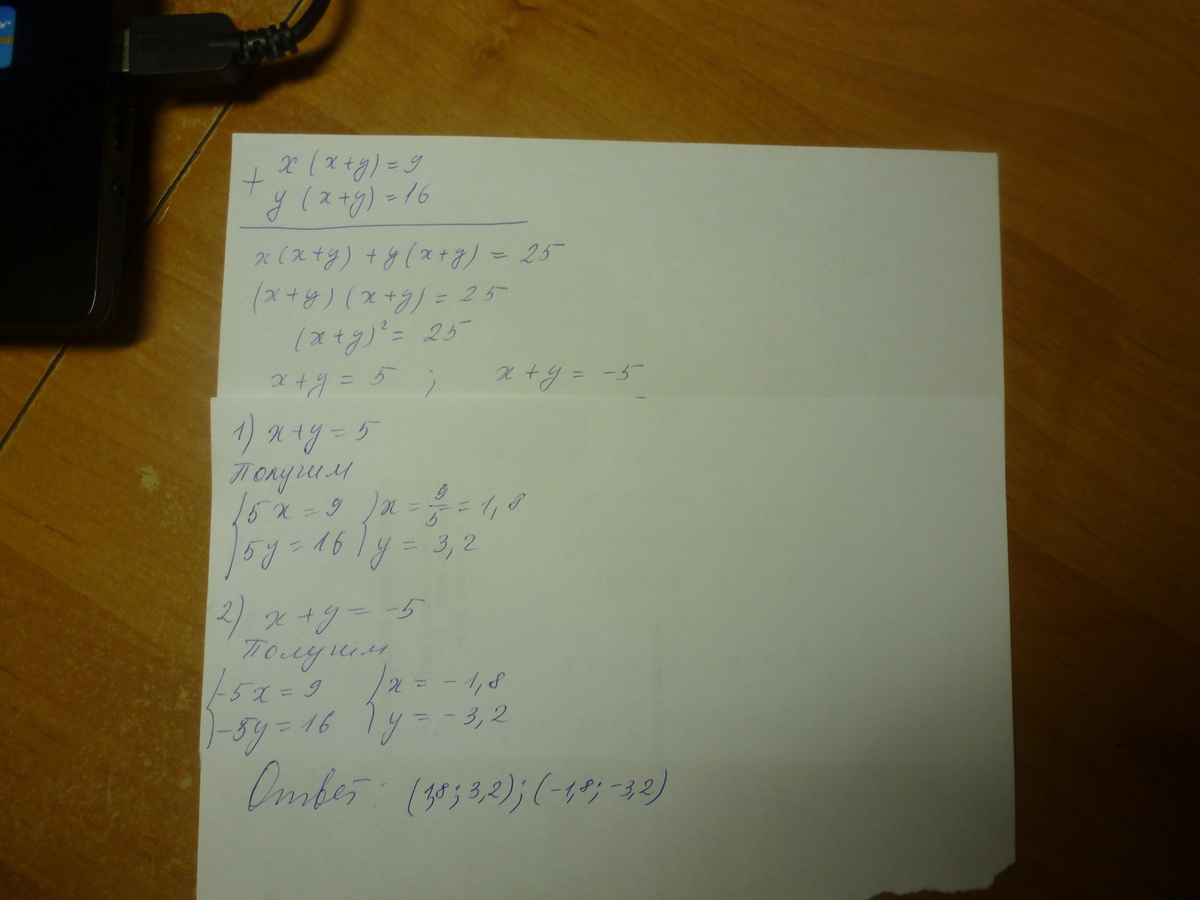 + x (x+y) = 9
y (x+y) = 16
x(x+y) + y(x+y) = 25
(x+y) (x+y) = 25
(x+y)² = 25
x+y = 5 ; x+y = -5
1) x+y = 5
Получим
{5x = 9 {x = 9/5 = 1,8
{5y = 16 {y = 3,2
2) x+y = -5
Получим
{-5x = 9 {x = -1,8
{-5y = 16 {y = -3,2
Ответ: (1,8; 3,2); (-1,8; -3,2)